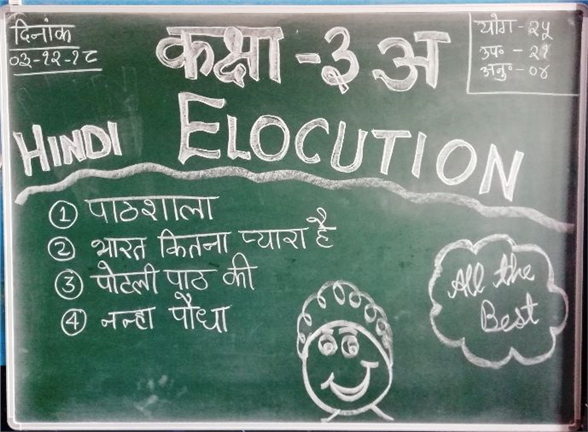 दिनांक
०३-१२-१८
कक्षा -३ अ
योग - २५
उप० - २१
अनु० - ०४
HINDI ELOCUTION
① पाठशाला
② भारत कितना प्यारा है
③ पोटली पाठ की
④ नन्हा पौधा
All the
Best